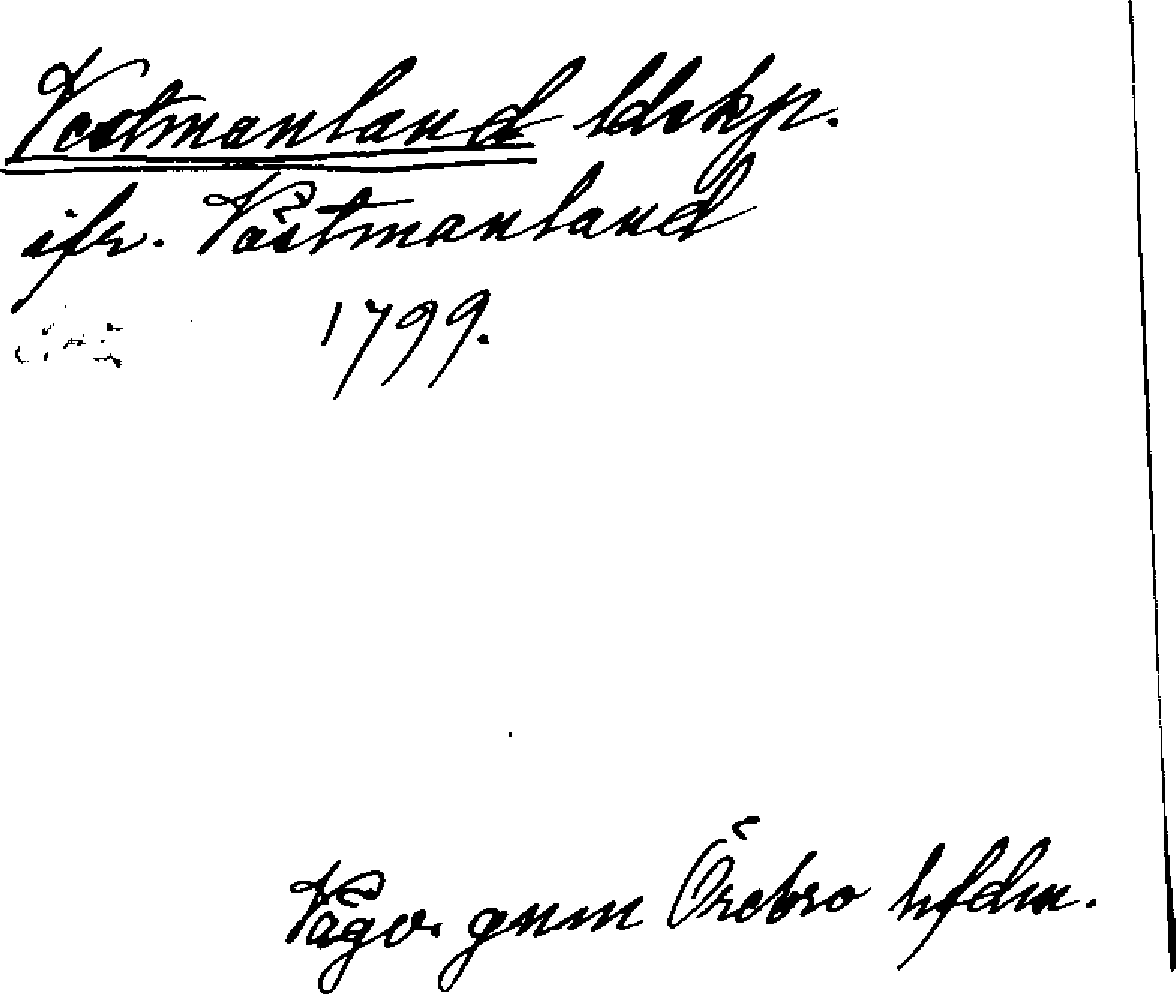 Västmanland ldskp.
ifr. Västmanland
1799.
Vägv. gnm Örebro hfdm.